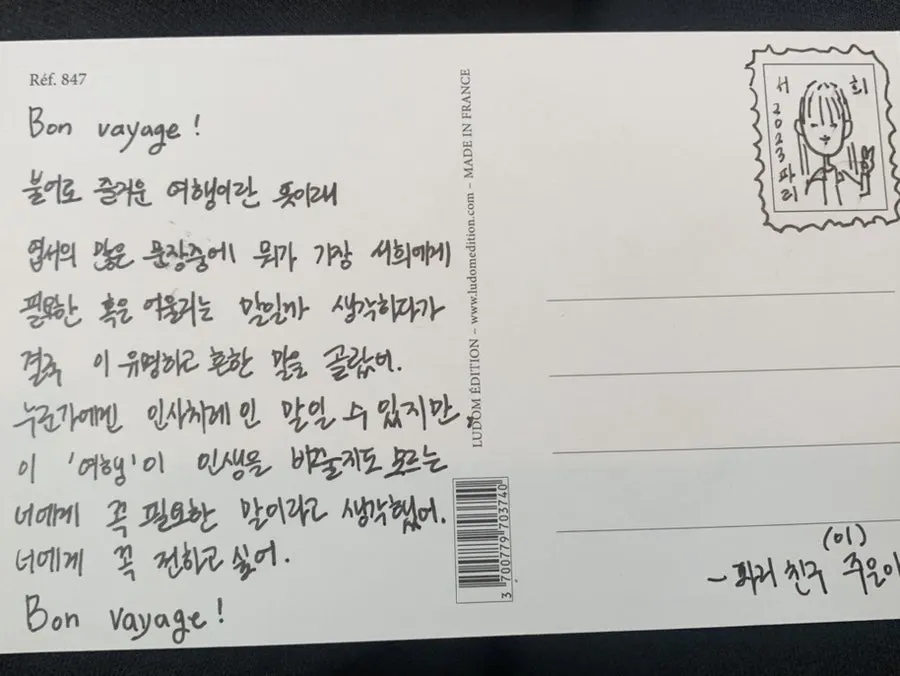 Réf. 847
Bon vayage!
불어로 즐거운 여행이란 뜻이래
엽서의 많은 문장중에 뭐가 가장 서희에게
필요한 혹은 어울리는 말일까 생각하다가
결국 이 유명하고 흔한 말을 골랐어.
누군가에겐 인사치레인 말일 수 있지만,
이 '여행'이 인생을 바꿀지도 모르는
너에게 꼭 필요한 말이라고 생각했어.
너에게 꼭 전하고 싶어.
Bon vayage!
LUDOM ÉDITION – www.ludomedition.com – MADE IN FRANCE
3 700779 703740
서희
2023 파리
(이)
~ 파리 친구 주은이